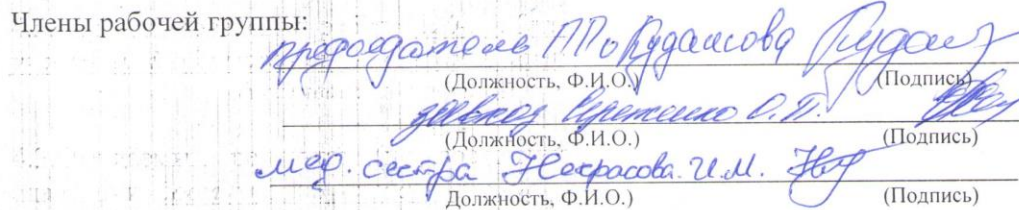 Члены рабочей группы:
председатель ППо Кудаисова
(Должность, Ф.И.О.) (Подпись)
завхоз О.П.
(Должность, Ф.И.О.) (Подпись)
мед. сестра Некрасова. И.М.
Должность, Ф.И.О.) (Подпись)